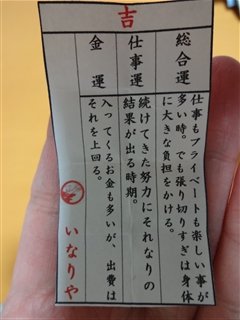 吉
総合運
仕事もプライベートも楽しい事が
多い時。でも張り切りすぎは身体
に大きな負担をかける。
仕事運
続けてきた努力にそれなりの
結果が出る時期。
金運
入ってくるお金も多いが、出費は
それを上回る。
いなりや